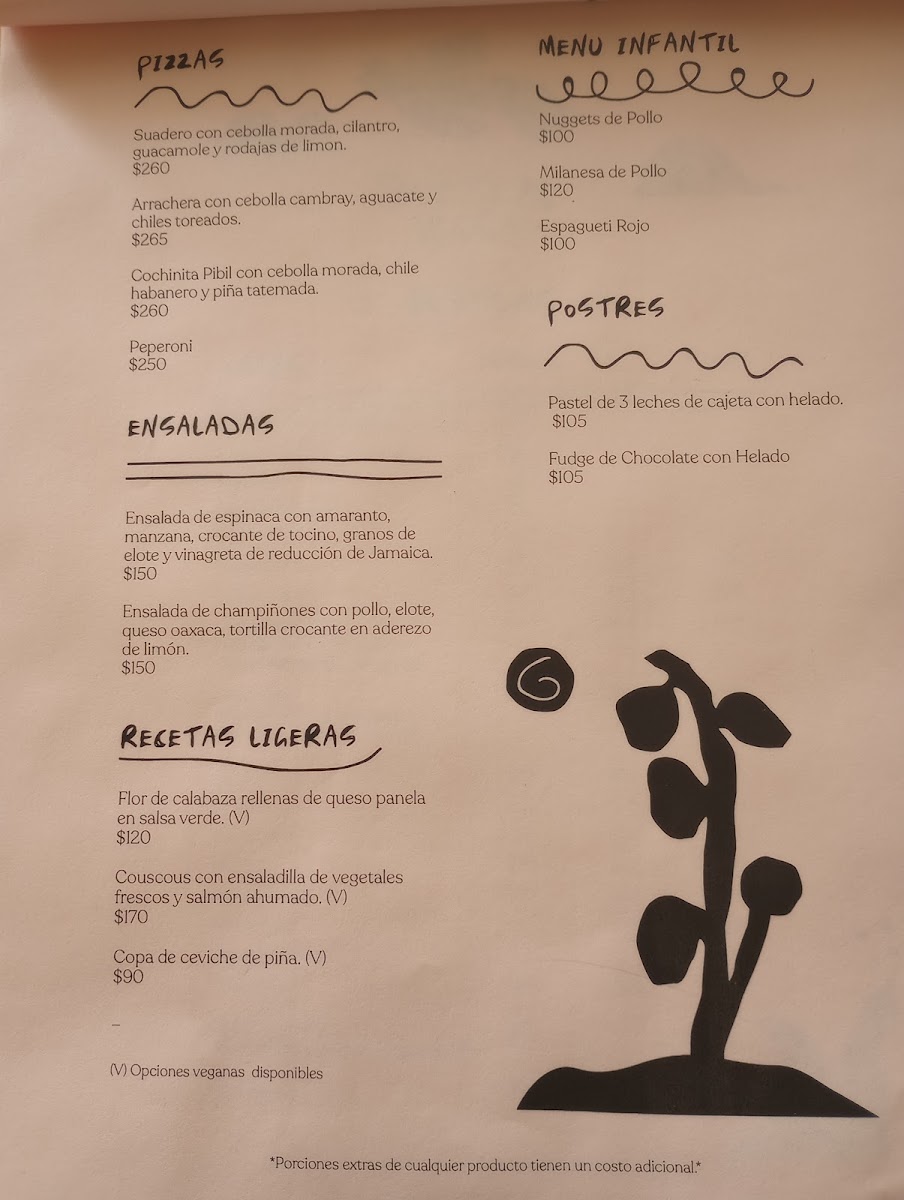 PIZZAS
Suadero con cebolla morada, cilantro,
guacamole y rodajas de limon.
$260
Arrachera con cebolla cambray, aguacate y
chiles toreados.
$265
Cochinita Pibil con cebolla morada, chile
habanero y piña tatemada.
$260
Peperoni
$250
ENSALADAS
Ensalada de espinaca con amaranto,
manzana, crocante de tocino, granos de
elote y vinagreta de reducción de Jamaica.
$150
Ensalada de champiñones con pollo, elote,
queso oaxaca, tortilla crocante en aderezo
de limón.
$150
RECETAS LIGERAS
Flor de calabaza rellenas de queso panela
en salsa verde. (V)
$120
Couscous con ensaladilla de vegetales
frescos y salmón ahumado. (V)
$170
Copa de ceviche de piña. (V)
$90
–
(V) Opciones veganas disponibles
MENU INFANTIL
Nuggets de Pollo
$100
Milanesa de Pollo
$120
Espagueti Rojo
$100
POSTRES
Pastel de 3 leches de cajeta con helado.
$105
Fudge de Chocolate con Helado
$105
*Porciones extras de cualquier producto tienen un costo adicional.*